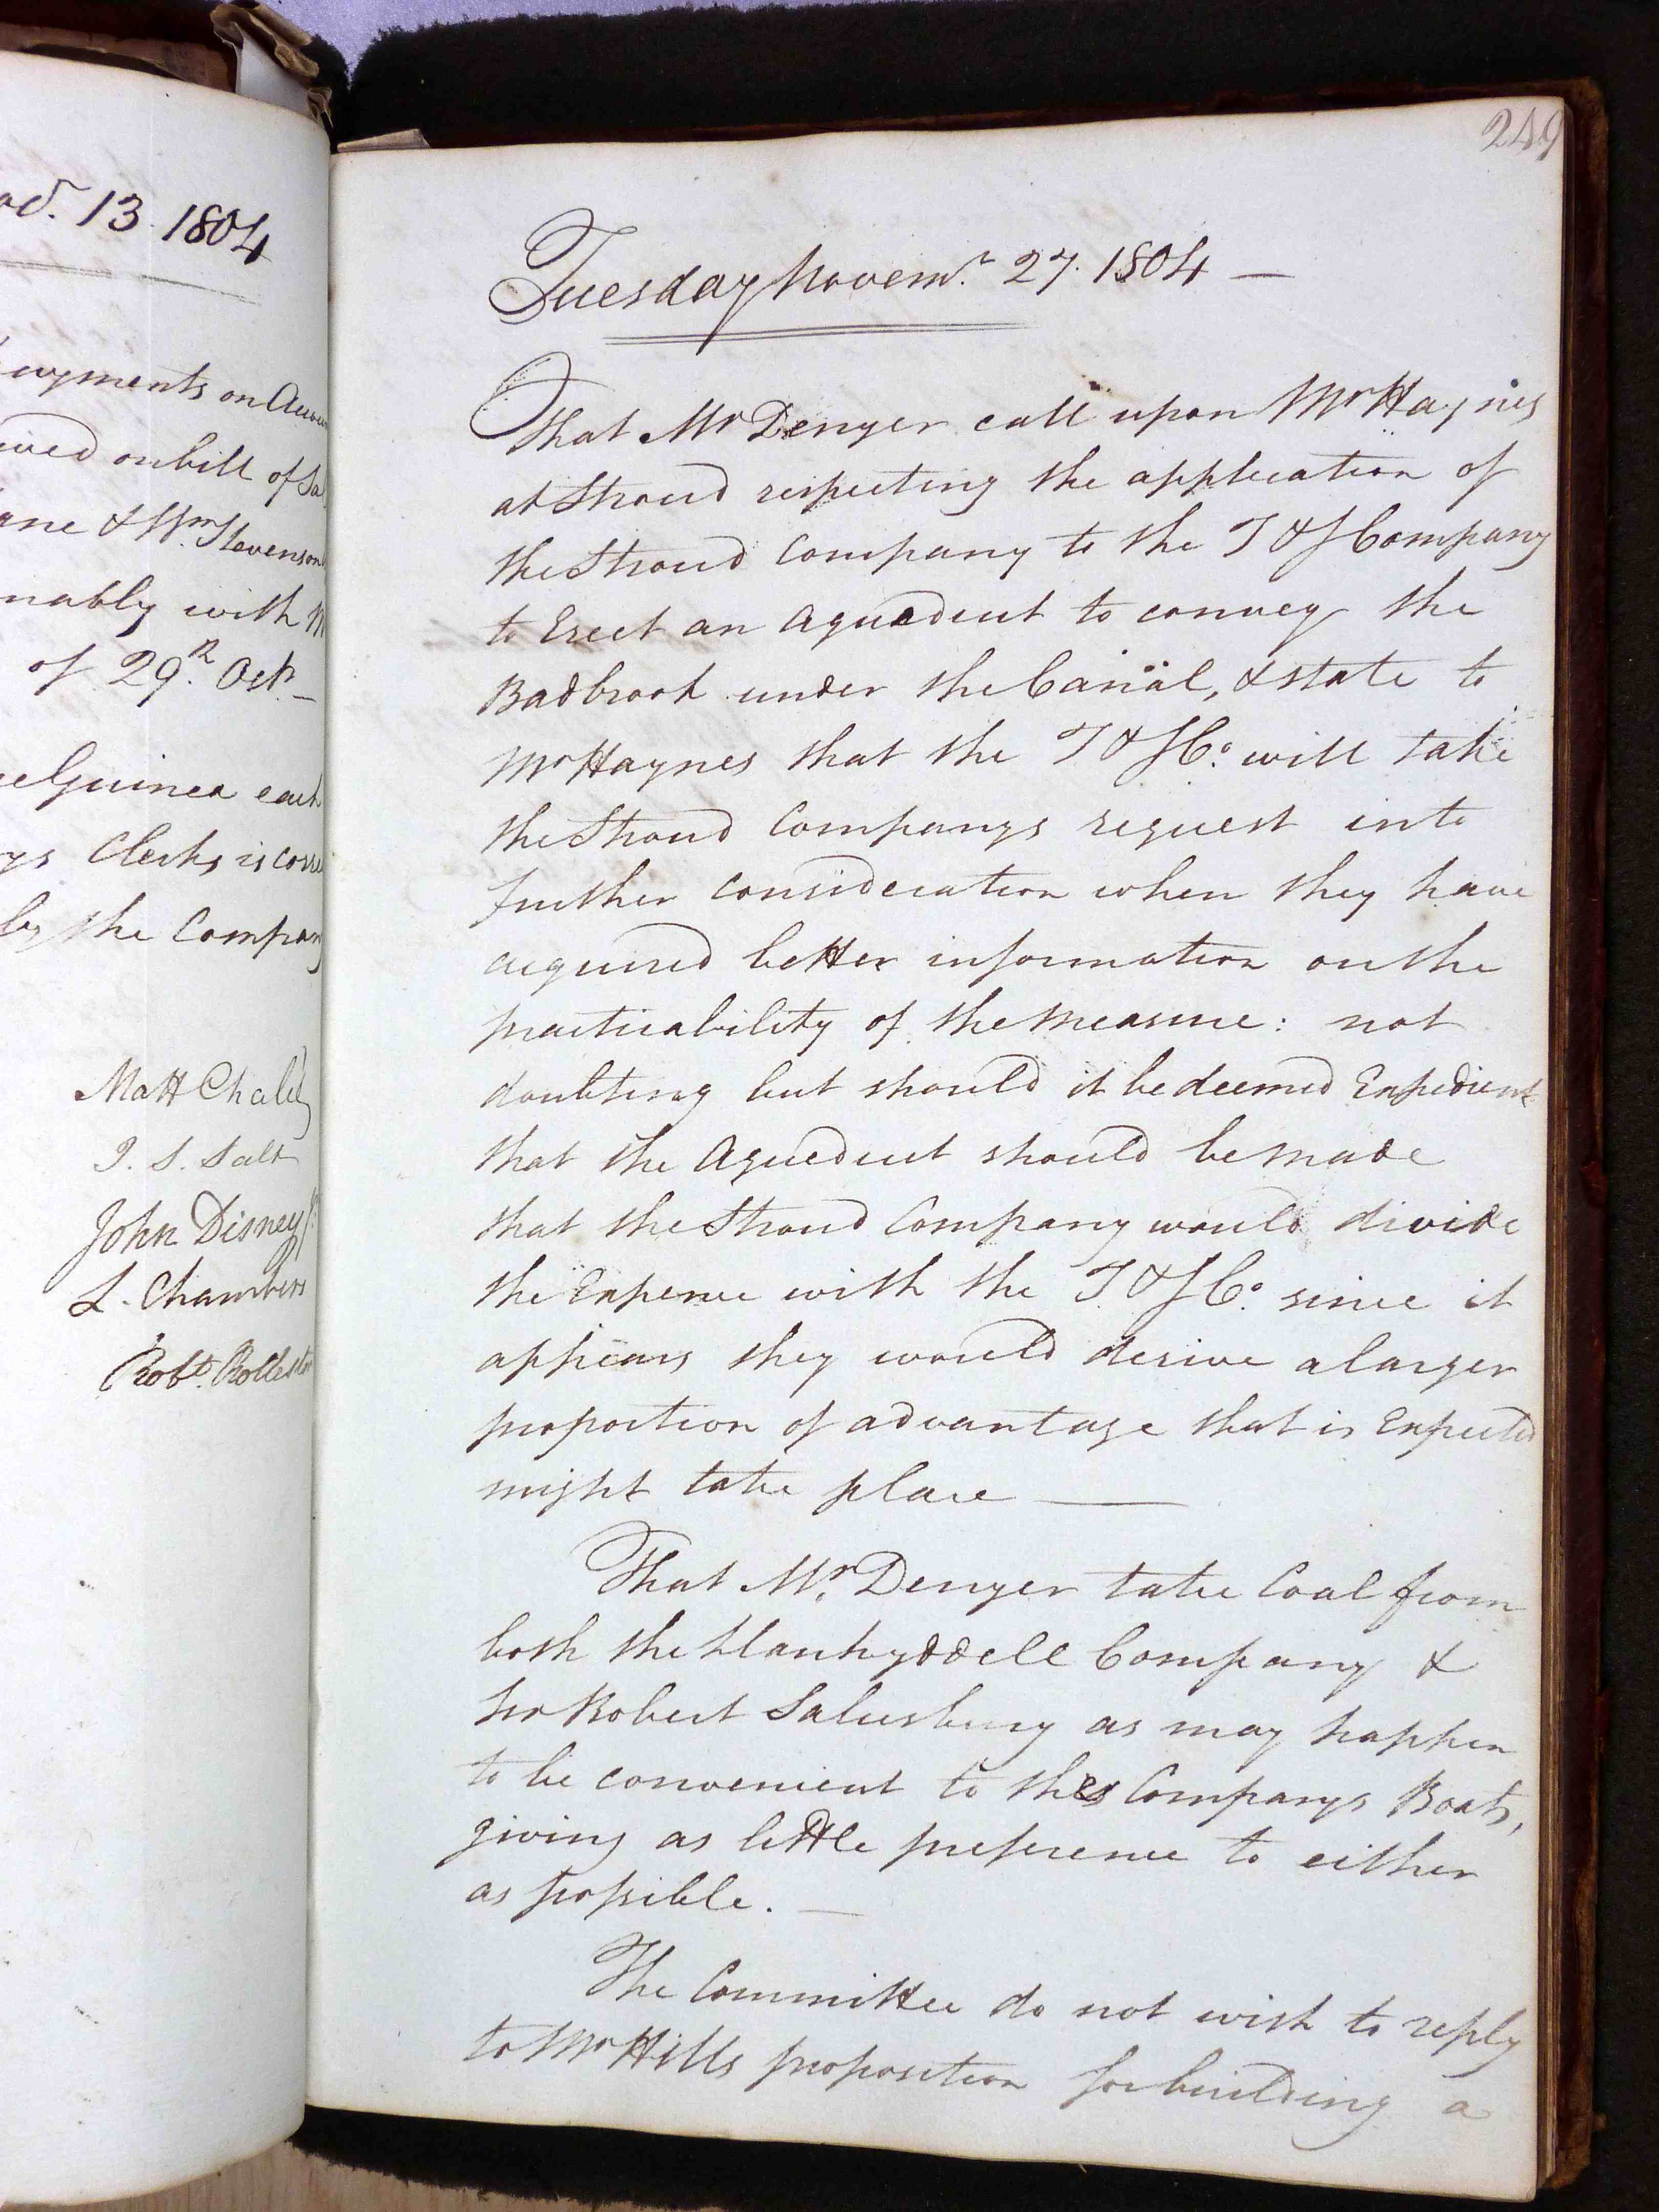 od. 13. 1804
ayments on Accou
ived on bill of Sa
ane & Wm. Stevenson
nably with M
of 29th. Octr.
e Guinea each
ys Clerks is corre
by the Company
Matt Chalie
J. S. Salt
John Disney
L. Chambers
Robt. Rolleston
249
Tuesday Novemr. 27. 1804 —
That Mr Denyer call upon Mr Haynes
at Stroud respecting the application of
the Stroud Company to the T & S Company
to Erect an Aqueduct to convey the
Badbrook under the Canal, & state to
Mr Haynes that the T & S Co. will take
the Stroud Companys request into
further consideration when they have
acquired better information on the
practicability of the measure: not
doubting but should it be deemed Expedient
that the Aqueduct should be made
that the Stroud Company would divide
the Expence with the T & S Co. since it
appears they would derive a larger
proportion of advantage that is Expected
might take place —
That Mr. Denyer take Coal from
both the Llanhyddell Company &
Sir Robert Salusbury as may happen
to be convenient to the Companys Boats,
giving as little preference to either
as possible. —
The Committee do not wish to reply
to Mr Hills proposition for building a